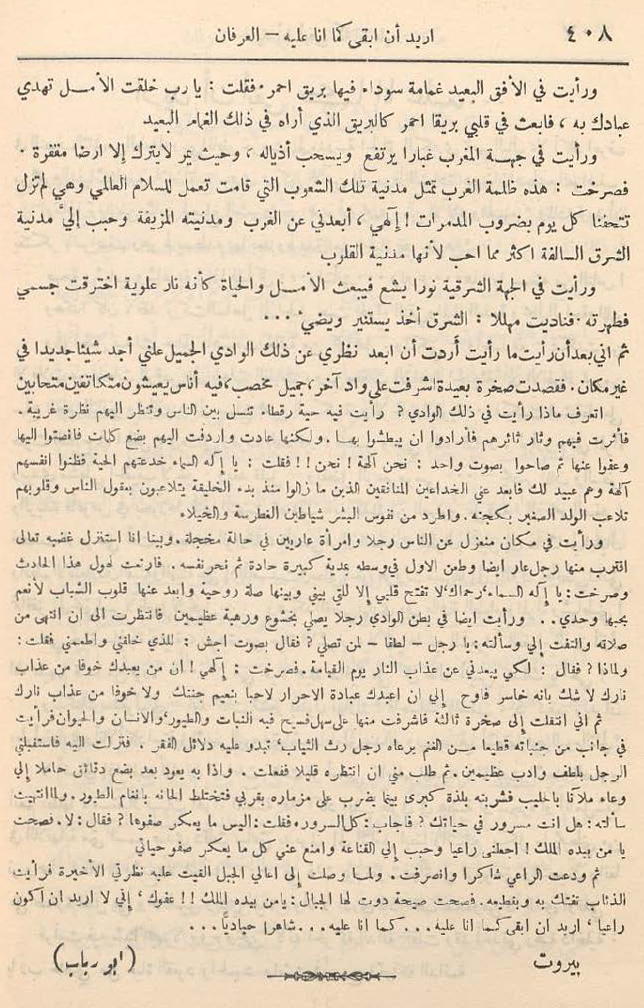 ٤٠٨ اريد أن ابقى كما انا عليه – العرفان
ورأيت في الأفق البعيد غمامة سوداء فيها بريق احمر. فقلت : يارب خلقت الأمـل تهدي
عبادك به ، فابعث في قلبي بريقا احمر كالبريق الذي أراه في ذلك الغمام البعيد
ورأيت في جهـة المغرب غبارا يرتفع ويسحب أذياله ، وحيث يمر لايترك إلا ارضا مقفرة .
فصرخت : هذه ظالمة الغرب تمثل مدنية تلك الشعوب التي قامت تعمل للسلام العالمي وهي لم تزل
تتحفنا كل يوم بضروب المدمرات ! إلهي ، أبعدني عن الغرب ومدنيته المزيفة وحبب إليّ مدنية
الشرق السالفة اكثر مما احب لأنها مدنية القلوب
ورأيت في الجهة الشرقية نورا يشع فيبعث الأمـل والحياة كأنه نار علوية اخترقت جسمي
فطهرته . فناديت مهللا : الشرق أخذ يستنير ويضيء ...
ثم اني بعد أن رأيت ما رأيت أردت أن ابعد نظري عن ذلك الوادي الجميل علني أجد شيئا جديدا في
غير مكان. فقصدت صخرة بعيدة اشرفت على واد آخر، جميل مخصب، فيه أناس يعيشون متكاتفين متحابين
اتعرف ماذا رأيت في ذلك الوادي ? رأيت فيه حية رقطاء تنسل بين الناس وتنظر اليهم نظرة غريبة .
فأثرت فيهم وثار ثائرهم فأرادوا ان يبطشوا بهـا . ولكنها عادت واردفت اليهم بضع كلمات فانصتوا اليها
وعفوا عنها ثم صاحوا بصوت واحد : نحن آلهة ! نحن ! ! فقلت : يا إله السماء خدعتهم الحية فظنوا انفسهم
آلهة وهم عبيد لك فابعد عني الخداعين المنافقين الذين ما زالوا منذ بدء الخليقة يتلاعبون بعقول الناس وقلوبهم
تلاعب الولد الصغير بكجته . واطرد من نفوس البشر شياطين الغطرسة والخيلاء
ورأيت في مكان منعزل عن الناس رجلا وامرأة عاريين في حالة مخجلة . وبينا انا استنزل غضبه تعالى
اقترب منها رجل عار ايضا وطعن الاول في وسطه بمدية كبيرة حادة ثم نحر نفسه . فارتعت لهول هذا الحادث
وصرخت : يا إله السماء ' رحماك ' لا تفتح قلبي إلا للتي بيني وبينها صلة روحية وابعد عنها قلوب الشباب لأنعم
بحبها وحدي . . ورأيت ايضا في بطن الوادي رجلا يصلي بخشوع ورهبة عظيمين فانتظرت الى ان انتهى من
صلاته والتفت إلي وسألته : يا رجل – لطفا – لمن تصلي ? فقال بصوت اجش : للذي خلقني واطعمني فقلت :
ولماذا ? فقال : لكي يبعدني عن عذاب النار يوم القيامة . فصرخت : إلهي ! ان من يعبدك خوفا من عذاب
نارك لا شك بانه خاسر إلي ان اعبدك عبادة الاحرار لاحبا بنعيم جنتك ولا خوفا من عذاب نارك
ثم اني انتقلت إلى صخرة ثالثة فاشرفت منها على سهل فسيح فيه النبات والطيور ' والانسان والحيوان فرأيت
في جانب من جنباته قطيعا مـن الغنم يرعاه رجل رث الثياب ' تبدو عليه دلائل الفقر . فنزلت اليه فاستقبلني
الرجل بلطف وادب عظيمين . ثم طلب مني ان انتظره قليلا ففعلت . واذا به يعود بعد بضع دقائق حاملا إلي
وعاء ملآنا بالحليب فشربته بلذة كبرى بينما يضرب على مزماره بقربي فتختلط الحانه بانغام الطيور . ولما انتهيت
سألته : هل انت مسرور في حياتك ? فاجاب : كل السرور . فقلت : اليس ما يعكر صفوها ? فقال : لا . فصحت
يا من بيده الملك ! اجعلني راعيا وحبب إلي القناعة وامنع عني كل ما يعكر صفو حياتي
ثم ودعت الراعي شاكرا وانصرفت . ولمـا وصلت إلى اعالي الجبل القيت عليه نظرتي الأخيرة فرأيت
الذئاب تفتك به وبقطيعه . فصحت صيحة دوت لها الجبال : يا من بيده الملك ! ! عفوك ' إني لا اريد ان اكون
راعيا ' اريد ان ابقى كمـا انا عليه ... كما انا عليه ... شاهرا حياديًا ...
بيروت (ابو رباب)